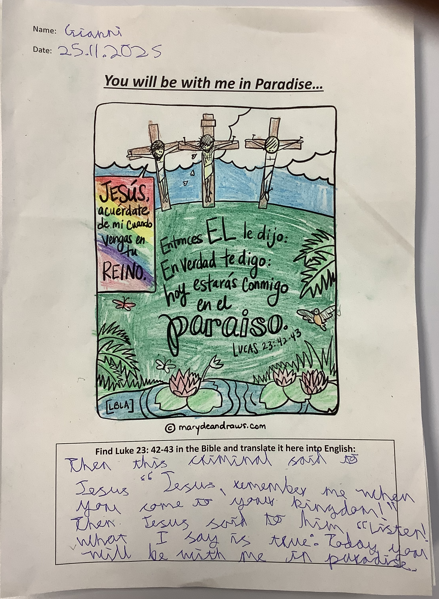 Name: Gianni
Date: 25.11.2025
You will be with me in Paradise...
JESÚS,
acuérdate
de mi cuando
vengas en
tu
REINO.
Entonces EL le dijo:
En verdad te digo:
hoy estarás Conmigo
en el
paraiso.
LUCAS 23:42-43
[LBLA]
© marydeandraws.com
Find Luke 23: 42-43 in the Bible and translate it here into English:
Then this criminal said to
Jesus "Jesus, remember me when
you come to your kingdom!"
Then Jesus said to him, "Listen!
What I say is true: Today you
will be with me in paradise.